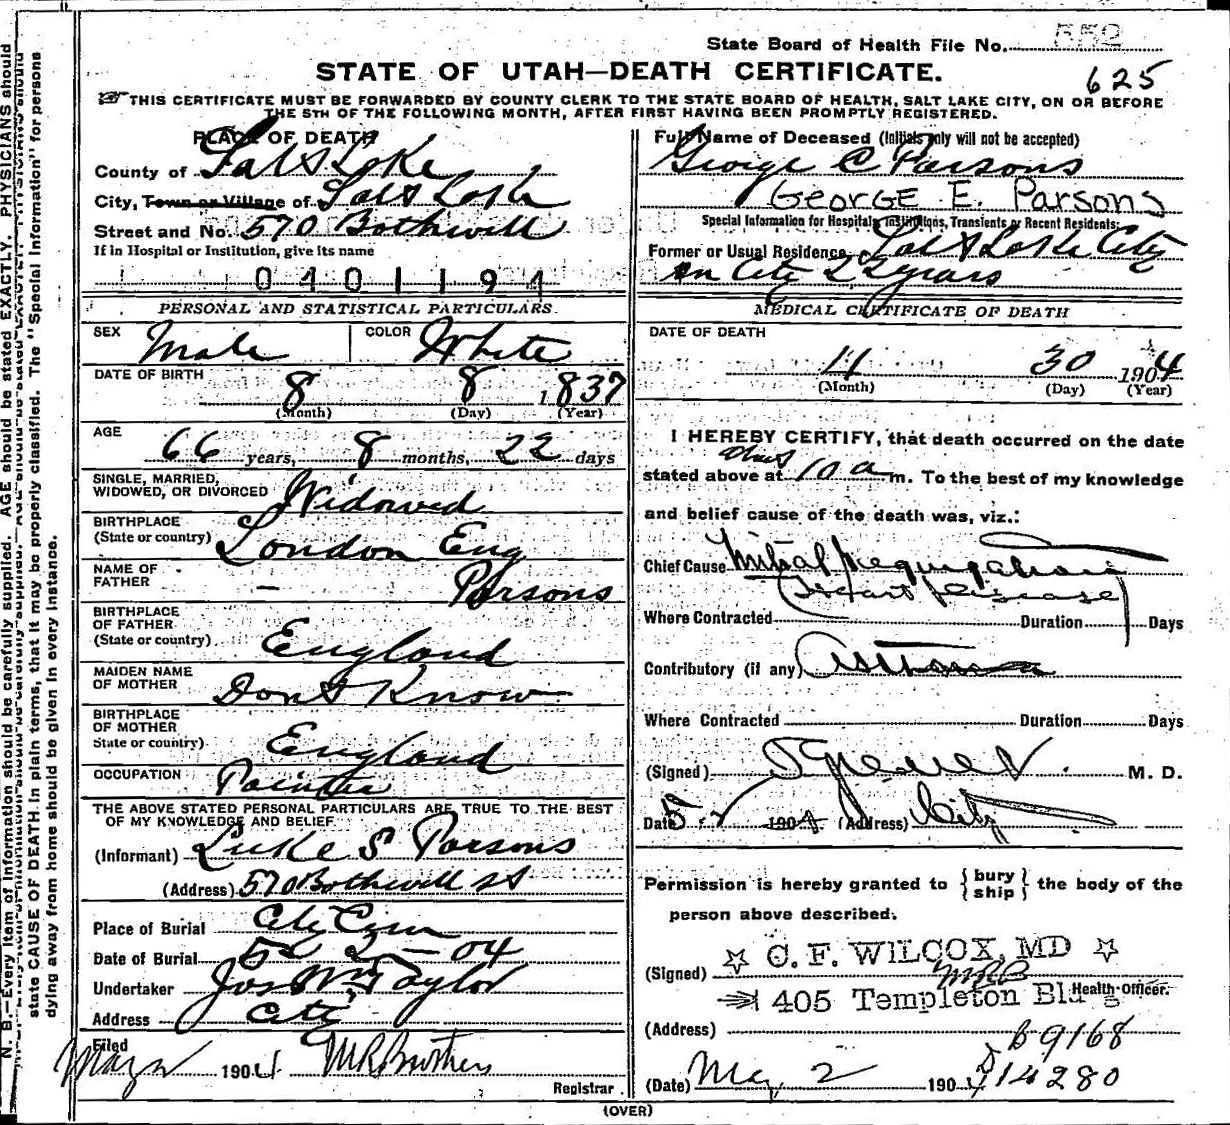 State Board of Health File No. 552
STATE OF UTAH—DEATH CERTIFICATE.
625
THIS CERTIFICATE MUST BE FORWARDED BY COUNTY CLERK TO THE STATE BOARD OF HEALTH, SALT LAKE CITY, ON OR BEFORE
THE 5TH OF THE FOLLOWING MONTH, AFTER FIRST HAVING BEEN PROMPTLY REGISTERED.
PLACE OF DEATH
County of Salt Lake
City, Town or Village of Salt Lake
Street and No. 570 Bothwell
If in Hospital or Institution, give its name
0401194
PERSONAL AND STATISTICAL PARTICULARS.
SEX Male COLOR White
DATE OF BIRTH 8 8 1837
(Month) (Day) (Year)
AGE 66 years, 8 months, 22 days
SINGLE, MARRIED,
WIDOWED, OR DIVORCED Widowed
BIRTHPLACE
(State or country) London Eng
NAME OF
FATHER — Parsons
BIRTHPLACE
OF FATHER
(State or country) England
MAIDEN NAME
OF MOTHER Dont Know
BIRTHPLACE
OF MOTHER
State or country) England
OCCUPATION Painter
THE ABOVE STATED PERSONAL PARTICULARS ARE TRUE TO THE BEST
OF MY KNOWLEDGE AND BELIEF.
(Informant) Luke S Parsons
(Address) 570 Bothwell St
Place of Burial City Cem
Date of Burial 5 2 - 04
Undertaker Jos Wm Taylor
Address City
Filed
May 2 1904 Registrar
Full Name of Deceased (Initials only will not be accepted)
George C Parsons
GEORGE E. Parsons
Special Information for Hospitals, Institutions, Transients or Recent Residents:
Former or Usual Residence Salt Lake City
In City 22 years
MEDICAL CERTIFICATE OF DEATH
DATE OF DEATH
4 30 1904
(Month) (Day) (Year)
I HEREBY CERTIFY, that death occurred on the date
about
stated above at 10 a m. To the best of my knowledge
and belief cause of the death was, viz.:
Chief Cause Mitral Regurgitation
(Heart Disease)
Where Contracted Duration Days
Contributory (if any) Asthma
Where Contracted Duration Days
(Signed) M. D.
Date 5 - 2 1904 (Address) City
Permission is hereby granted to { bury ship } the body of the
person above described.
(Signed) ☆ C. F. WILCOX, MD ☆
MRB
405 Templeton Bldg Health Officer.
(Address)
B 9168
(Date) May 2 1904 14280
(OVER)
N. B.—Every item of information should be carefully supplied. AGE should be stated EXACTLY. PHYSICIANS should
state CAUSE OF DEATH in plain terms, that it may be properly classified. The "Special Information" for persons
dying away from home should be given in every instance.